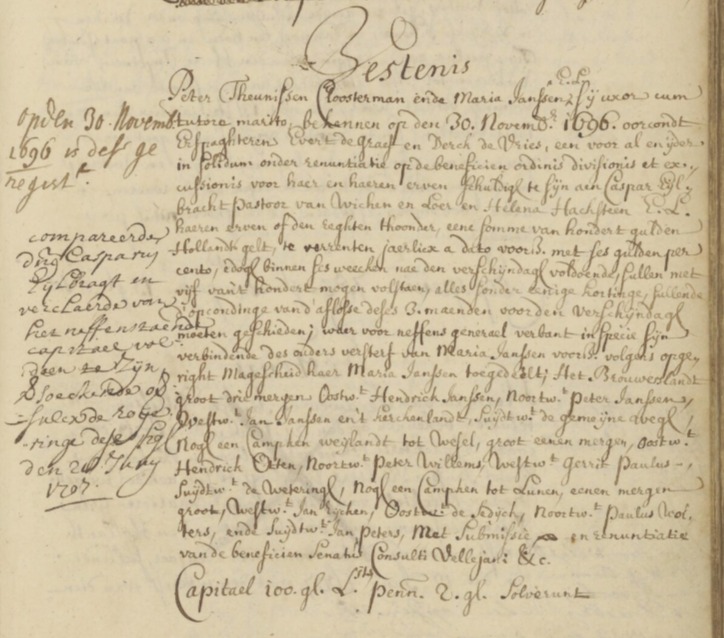 Bestenis
Peter Theunissen Cloosterman ende Maria Janssen E. L. sij uxor cum
tutore marito, bekennen op den 30. Novemb. 1696. oorcondt
Erfpaghteren Evert de Graef en Derck de Vries, een voor al en ijder
in solidum onder renuntiatie op de beneficien ordinis divisionis et ex-
cussionis voor haer en haeren erven schuldigh te sijn aen Caspar Eijl-
bracht Pastoor van Wichen en Loer en Helena Hachsteen E. L.
haeren erven of den reghten thoonder, eene somme van hondert gulden
Hollandts gelt, te verrenten jaerlix a dato voors. met ses gulden per
cento, edogh binnen ses weecken nae den verschijndagh voldoende, sullen met
vijf van't hondert mogen volstaen, alles sonder eenige kortinge, sullende
d'opcondinge van d'aflosse deses 3. maenden voor den verschijndagh
moeten geschieden; waer voor neffens generael verbant in specie sijn
verbindende des ouders versterf van Maria Janssen voors. volgens opge-
right Magescheid haer Maria Janssen toegedeelt; Het Brouwerslandt
groot drie mergen Oostw.t Hendrick Janssen, Noortw.t Peter Janssen,
Westw.t Jan Janssen en't kerckenlandt, Suijdtw.t de gemeijne wegh,
Nogh een Campken weijlandt tot Wesel, groot eenen mergen, Oostw.t
Hendrick Otten, Noortw.t Peter Willems, Westw.t Gerrit Paulus-,
Suijdtw.t de Weteringh, Nogh een Campken tot Lunen, eenen mergen
groot, Westw.t Jan Rijcken, Oostw.t de Zedijck, Noortw.t Paulus Wol-
ters, ende Suijdtw.t Jan Peters, Met Submissie en renuntiatie
van de beneficien Senatus Consulti Vellejani &c.
Capitael 100. gl. L. sth penn. 2. gl. solverunt
op den 30. Novemb.
1696 is dese ge
regist.t
compareerde
d'Hr Casparus
Eijlbragt en
verclaerde van
hier neffenstaende
capitael vol-
daen te zijn,
versoeckende op
sulcx de roije-
ringe deses sig
den 20 Junij
1707.